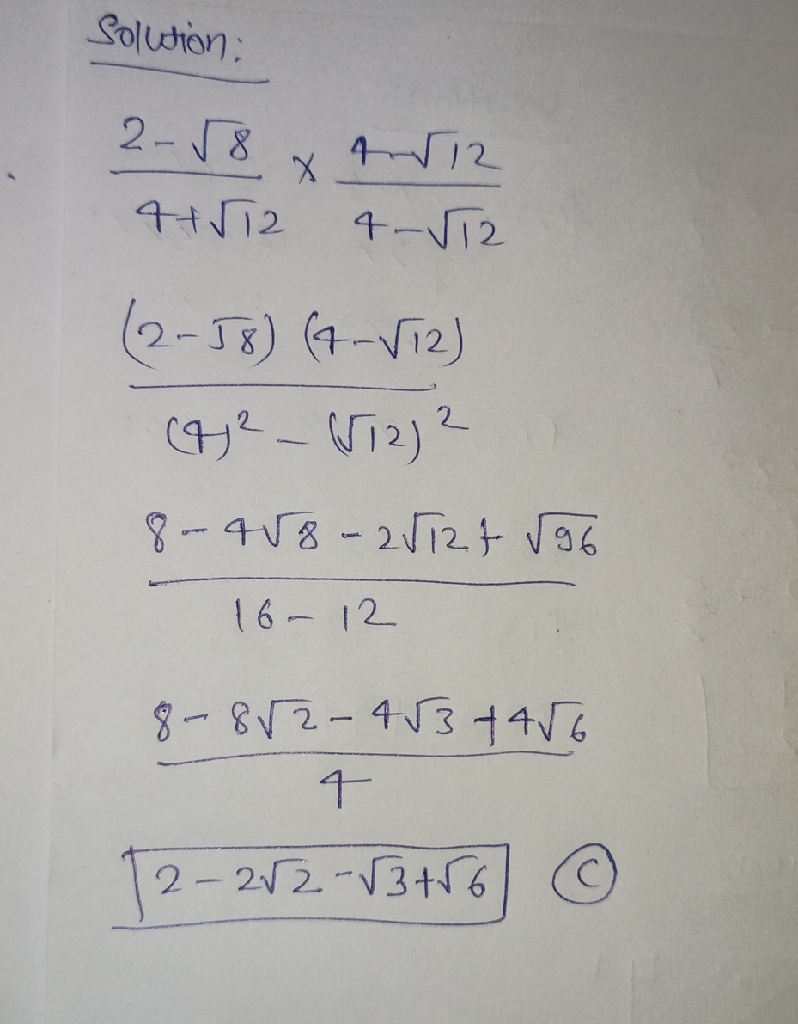 Solution:
2-√8 / 4+√12 x 4-√12 / 4-√12
(2-√8) (4-√12) / (4)² - (√12)²
8 - 4√8 - 2√12 + √96 / 16 - 12
8 - 8√2 - 4√3 + 4√6 / 4
2 - 2√2 - √3 + √6 (C)